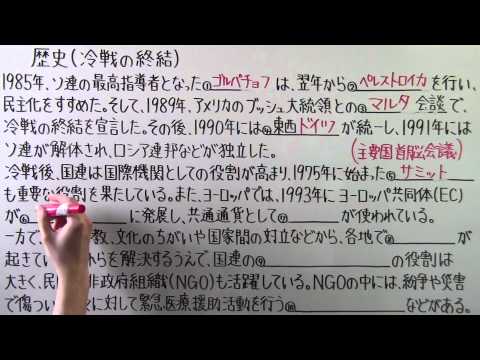 歴史(冷戦の終結)
1985年、ソ連の最高指導者となった①ゴルバチョフは、翌年から②ペレストロイカを行い、
民主化をすすめた。そして、1989年、アメリカのブッシュ大統領との③マルタ会談で、
冷戦の終結を宣言した。その後、1990年には④東西ドイツが統一し、1991年には
ソ連が解体され、ロシア連邦などが独立した。 (主要国首脳会議)
冷戦後、国連は国際機関としての役割が高まり、1975年に始まった⑤サミット
も重要な役割を果たしている。また、ヨーロッパでは、1993年にヨーロッパ共同体(EC)
が に発展し、共通通貨として が使われている。
一方で、 教、文化のちがいや国家間の対立などから、各地で が
起きてい らを解決するうえで、国連の の役割は
大きく、民 非政府組織(NGO)も活躍している。NGOの中には、紛争や災害
で傷つい に対して緊急医療援助活動を行う などがある。